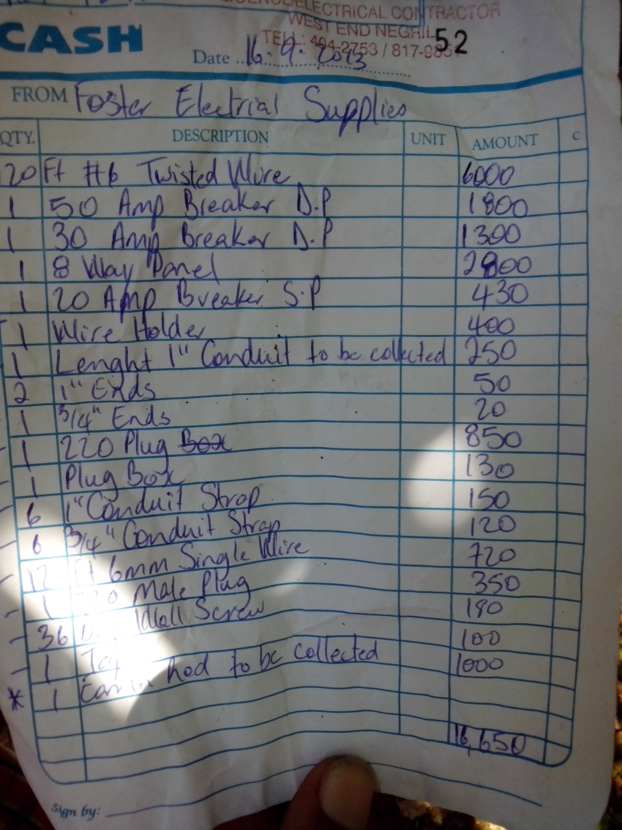 ELECTRICAL CONTRACTOR
WEST END NEGRIL
CASH
52
TEL: 404-2753 / 817-
Date 16. 9. 2013
FROM Foster Electrial Supplies
QTY. DESCRIPTION UNIT AMOUNT C
20 Ft #6 Twisted Wire 6000
1 50 Amp Breaker D.P 1800
1 30 Amp Breaker D.P 1300
1 8 Way Panel 2800
1 20 Amp Breaker S.P 430
1 Wire Holder 400
1 Lenght 1" Conduit to be collected 250
2 1" Ends 50
1 3/4" Ends 20
1 220 Plug Box 850
1 Plug Box 130
6 1" Conduit Strap 150
6 3/4" Conduit Strap 120
12 Ft 6mm Single Wire 720
1 Male Plug 350
36 Wall Screw 180
1 100
* 1 hod to be collected 1000
16,650
Sign by: